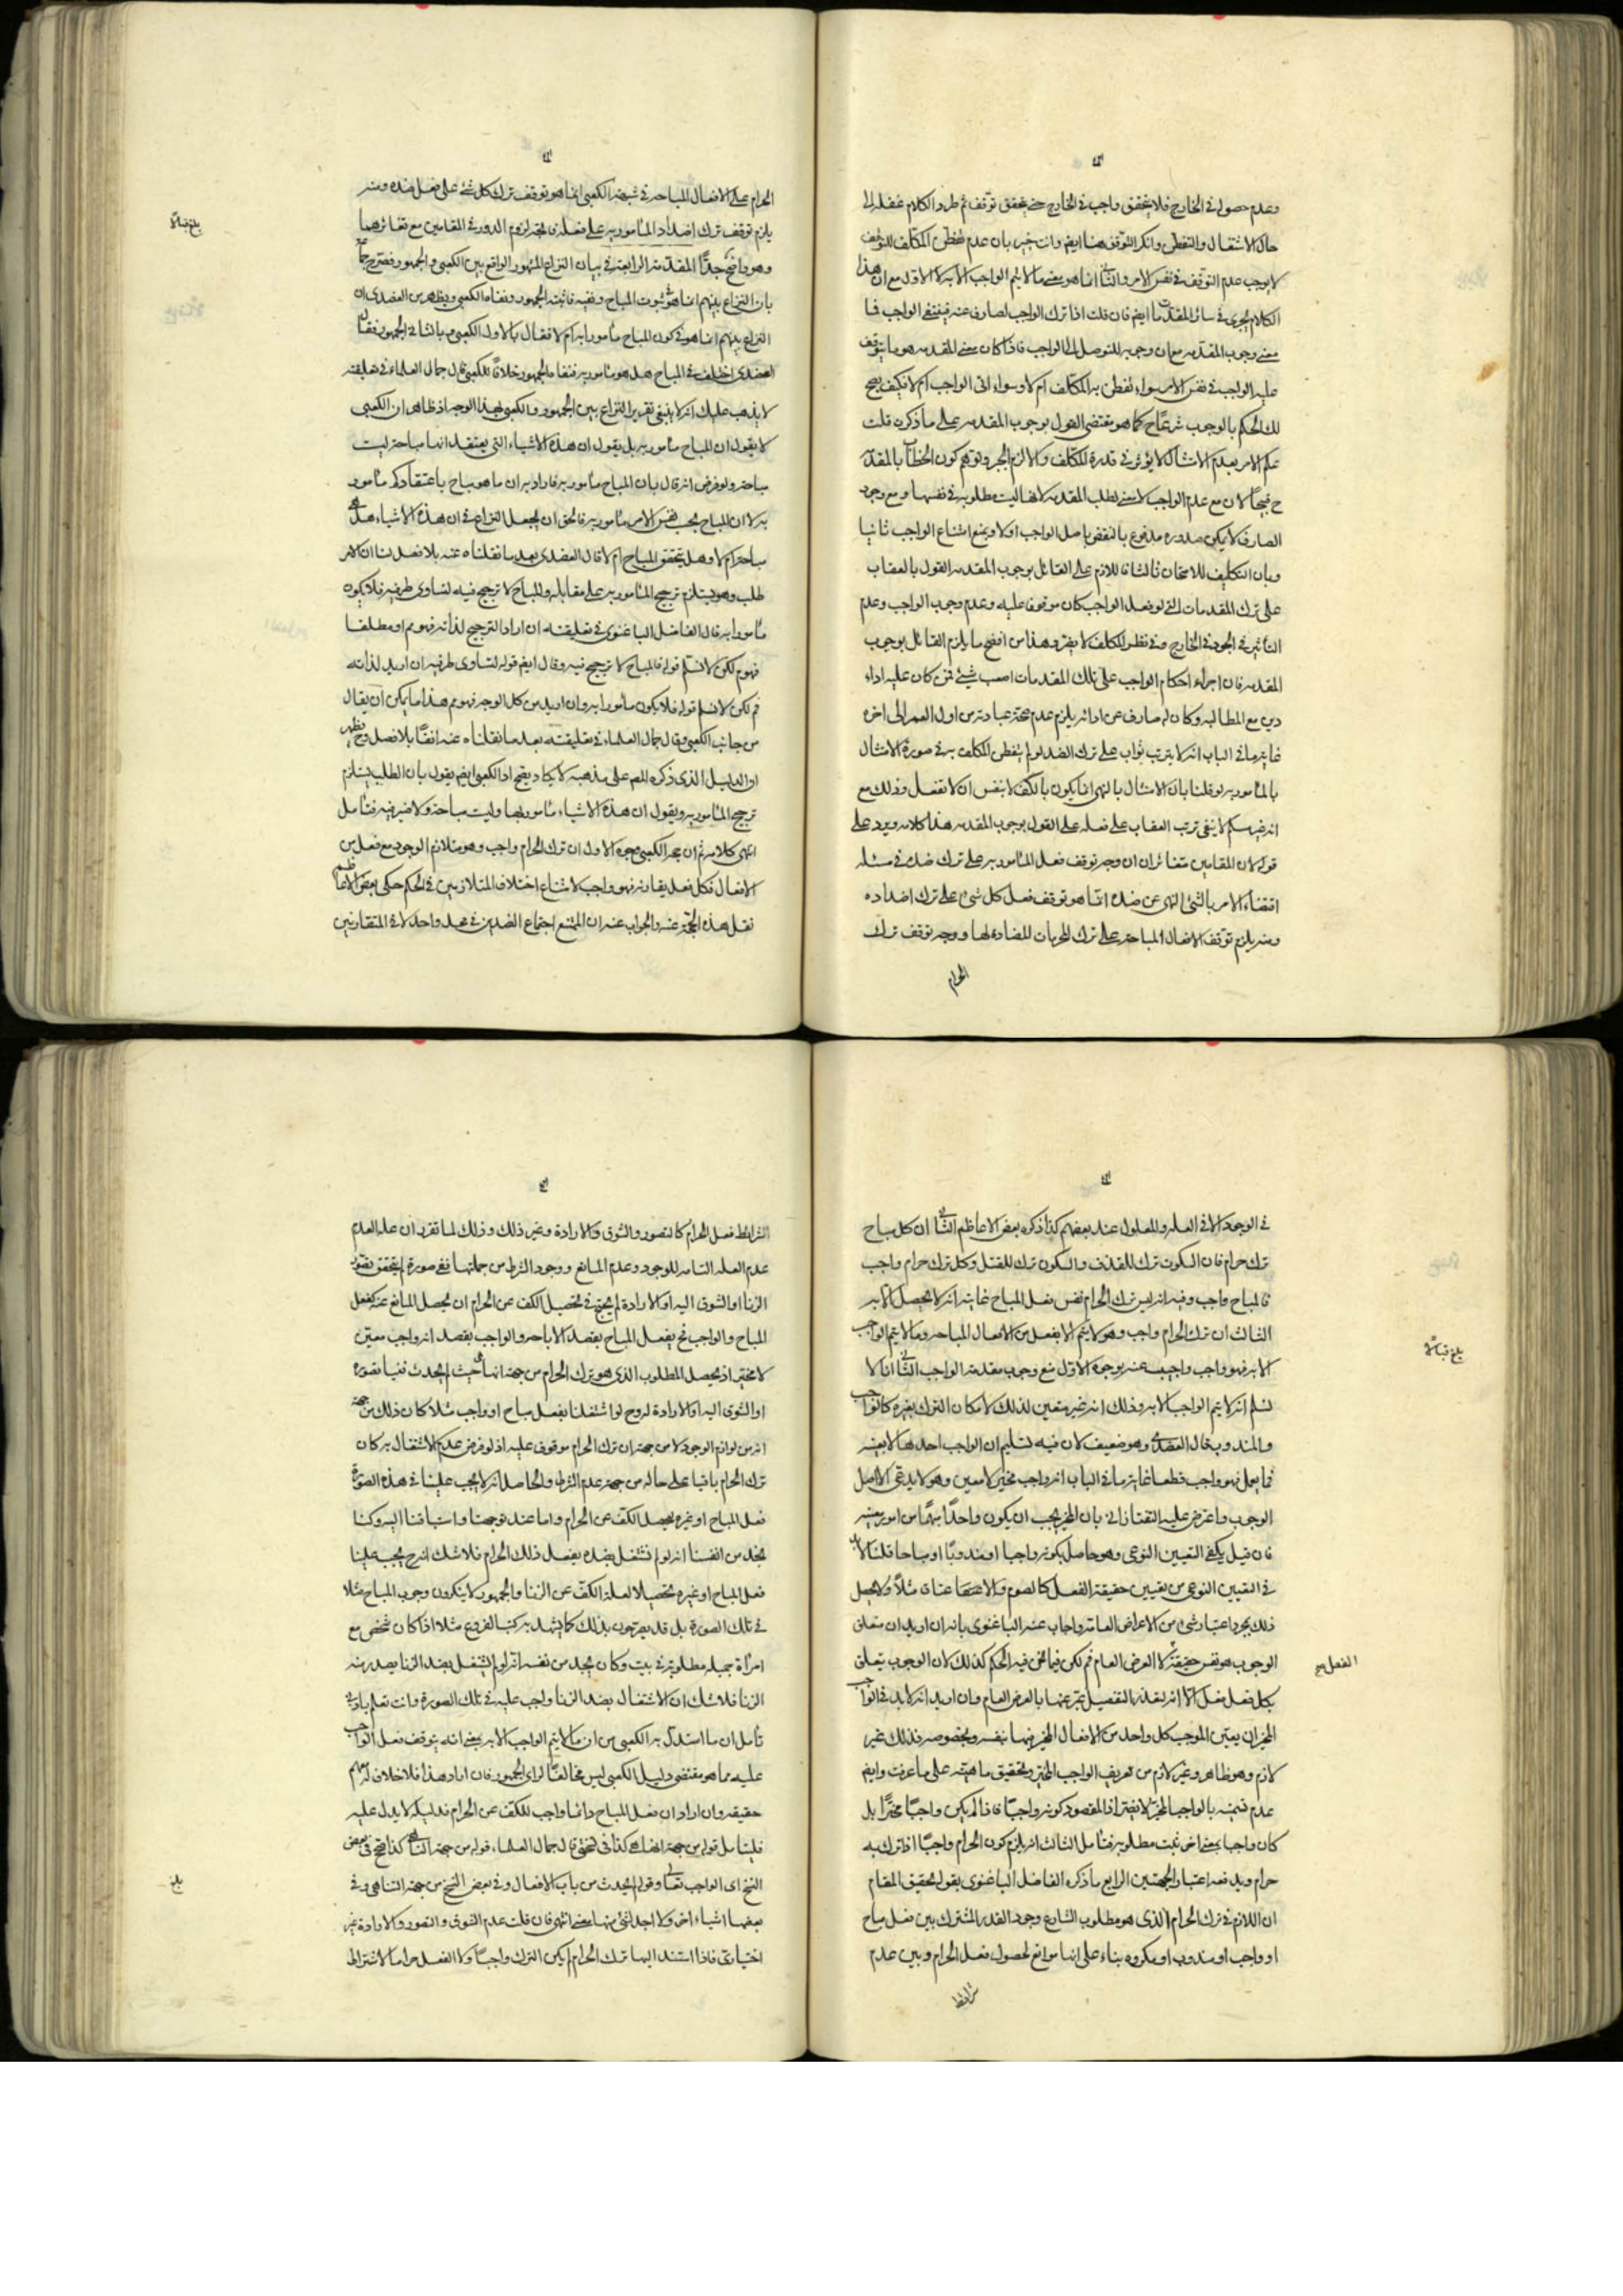 وعدم حصوله في الخارج فلا يتحقق واجب في الخارج حتى يتحقق توقف ثم طرد الكلام غفلة الى
حال الاشتغال والتفطن وانكر التوقف هنا ايضم وانت خبير بان عدم تفطن المكلف للتوقف
لا يوجب عدم التوقف في نفس الامر والثاني انما هو معنى ما لا يتم الواجب الا به لا الاول مع ان هذا
الكلام يجري في سائر المقدمات ايضم فان قلت اذا ترك الواجب لصارف عنه فينتفي الواجب فما
معنى وجوب المقدمه مع ان وجوبه للتوصل الى الواجب فاذا كان معنى المقدمه هو ما يتوقف
عليه الواجب في نفس الامر سواء تفطن به المكلف ام لا وسواء اتى الواجب ام لا فكيف يصح
لك الحكم بالوجوب شرعا ح كما هو مقتضى القول بوجوب المقدمه على ما ذكرت قلت
علم الامر بعدم الامتثال لا يؤثر في قدرة المكلف والا لزم الجبر وتوهم كون الخطاب بالمقدمة
ح قبيحا لان مع عدم الواجب لا معنى لطلب المقدمه لانها ليست مطلوبه في نفسها ومع وجود
الصارف لا يمكن صدوره مدفوع بالنقض باصل الواجب اولا وبمنع امتناع الواجب ثانيا
وبان التكليف للامتحان ثالثا فاللازم على القائل بوجوب المقدمه القول بالعقاب
على ترك المقدمات التي لو فعل الواجب كان موقوفا عليه وعدم وجوب الواجب وعدم
التأثير في الوجود في الخارج وفي نظر المكلف لا يضر وهذا من افضح ما يلزم القائل بوجوب
المقدمه فان اجراء احكام الواجب على تلك المقدمات اصعب شيئ فمن كان عليه اداء
دين مع المطالبه وكان له صارف عن ادائه يلزم عدم صحة عباداته من اول العمر الى اخره
غاية ما في الباب انه لا يترتب ثواب على ترك الضد لو لم يتفطن المكلف به في صورة الامتثال
بالمامور به لو قلنا بان الامتثال بالنهي انما يكون بالكف لا بنفس ان لا تفعل وذلك مع
انه غير مسلم لا ينفي ترتب العقاب على فعله على القول بوجوب المقدمه هذا كلامه ويرد على
قوله لان المقامين متغائران ان وجه توقف فعل المامور به على ترك ضده في مسئلة
اقتضاء الامر بالشئ النهي عن ضده انما هو توقف فعل كل شئ على ترك اضداده
ومنه يلزم توقف الافعال المباحة على ترك المحرمات المضادة لها ووجه توقف ترك
الحرام
الحرام على الافعال المباحه في شبهة الكعبي انما هو توقف ترك كل شئ على فعل ضده ومنه
يلزم توقف ترك اضداد المأمور به على فعله فاتجه لزوم الدور في المقامين مع تغائرهما
وهو واضح جدّا المقدمة الرابعة في بيان النزاع المشهور الواقع بين الكعبي والجمهور فصرح جماعة
بان النزاع بينهم انما هو في ثبوت المباح ونفيه فاثبته الجمهور ونفاه الكعبي ويظهر من العضدي ان
النزاع بينهم انما هو في كون المباح مأمورا به ام لا فقال بالاول الكعبي وبالثاني الجمهور فقال
العضدي اختلف في المباح هل هو مأمور به فنفاه الجمهور خلافا للكعبي قال جمال العلماء في تعليقته
لا يذهب عليك انه لا ينبغي تقرير النزاع بين الجمهور والكعبي بهذا الوجه اذ ظاهر ان الكعبي
لا يقول ان المباح مأمور به بل يقول ان هذه الاشياء التي يعتقد انها مباحة ليست
مباحة ولو فرض انه قال بان المباح مأمور به فاراد به ان ما هو مباح باعتقادكم مأمور
به لا ان المباح بحسب نفس الامر مأمور به فالحق ان يجعل النزاع في ان هذه الاشياء هل هي
مباحة ام لا وهل يتحقق المباح ام لا قال العضدي بعد ما نقلناه عنه بلا فصل لنا ان الامر
طلب وهو يستلزم ترجيح المأمور به على مقابله والمباح لا ترجيح فيه لتساوي طرفيه فلا يكون
مأمورا به قال الفاضل الباغنوي في تعليقته ان اراد الترجيح لذاته فهو مم او مطلقا
فهو م لكن لا نسلم قوله فالمباح لا ترجيح فيه وقال ايضم قوله لتساوي طرفيه ان اريد لذاته
فم لكن لا نسلم قوله فلا يكون مأمورا به وان اريد من كل الوجه فهو مم هذا ما يمكن ان يقال
من جانب الكعبي وقال جمال العلماء في تعليقته بعد ما نقلناه عنه انفا بلا فصل وح يظهر
ان الدليل الذي ذكره المصم على مذهبه لا يكاد يتجه اذ الكعبي ايضم يقول بان الطلب يستلزم
ترجيح المأمور به ويقول ان هذه الاشياء مأمور بها وليست مباحة ولا ضير فيه فتأمل
انتهى كلامه ثم ان حجة الكعبي وجوه الاول ان ترك الحرام واجب وهو متلازم الوجود مع فعل من
الافعال فكل فعل يقارنه فهو واجب لامتناع اختلاف المتلازمين في الحكم حكى بعض الاعاظم
نقل هذه الحجة عنه والجواب عنه ان الممتنع اجتماع الضدين في محل واحد لا في المتقارنين
بلغ قبالا
في الوجود الا في العلة والمعلول عند بعضهم كذا ذكره بعض الاعاظم الثاني ان كل مباح
ترك حرام فان السكوت ترك للقذف والسكون ترك للقتل وكل ترك حرام واجب
فالمباح واجب وفيه انه ليس ترك الحرام نفس فعل المباح غايته انه لا يحصل الا به
الثالث ان ترك الحرام واجب وهو لا يتم الا بفعل من الافعال المباحة وما لا يتم الواجب
الا به فهو واجب واجيب عنه بوجوه الاول منع وجوب مقدمة الواجب الثاني انا لا
نسلم انه لا يتم الواجب الا به وذلك انه غير متعين لذلك لامكان الترك بغيره كالواجب
والمندوب قال العضدي وهو ضعيف لان فيه تسليم ان الواجب احدها لا بعينه
فما يعمل فهو واجب قطعا غاية ما في الباب انه واجب مخير لا معين وهو لا يدعي الا اصل
الوجوب واعترض عليه التفتازاني بان المخير يجب ان يكون واحدا مبهما من امور معينه
فان قيل يكفي التعيين النوعي وهو حاصل بكونه واجبا او مندوبا او مباحا قلنا لا بد
في التعيين النوعي من تعيين حقيقة الفعل كالصوم والاعتاق مثلا ولا يحصل
ذلك بمجرد اعتبار شئ من الاعراض العامة واجاب عنه الباغنوي بانه ان اريد ان متعلق
الوجوب هو نفس حقيقة لا العرض العام فم لكن فيما نحن فيه الحكم كذلك لان الوجوب يتعلق
بكل فعل فعل الا انه لتعذر التفصيل عبر عنها بالعرض العام وان اريد انه لا بد في الواجب
المخير ان يعين الموجب كل واحد من الافعال المخير فيها بنفسه وبخصوصه فذلك غير
لازم وهو ظاهر وغير لازم من تعريف الواجب المخير وتحقيق ماهيته على ما عرفت وايضم
عدم تسميته بالواجب المخير لا يضر اذ المقصود كونه واجبا فاذا لم يكن واجبا مخيرا بل
كان واجبا بمعنى اخر ثبت مطلوبه فتأمل الثالث انه يلزم كون الحرام واجبا اذا ترك به
حرام ويدفعه اعتبار الجهتين الرابع ما ذكره الفاضل الباغنوي بقوله تحقيق المقام
ان اللازم في ترك الحرام الذي هو مطلوب الشارع وجود القدر المشترك بين فعل مباح
او واجب او مندوب او مكروه بناء على انها موانع لحصول فعل الحرام وبين عدم
شرائط
بلغ قبالا
الفعل صح
الشرائط فعل الحرام كالتصور والشوق والارادة وغير ذلك وذلك لما تقرر ان علة العدم
عدم العلة التامه للوجود وعدم المانع ووجود الشرط من جملتها ففي صورة لم يتحقق تصور
الزنا او الشوق اليه او الارادة لم يحتج في تحصيل الكف عن الحرام ان يحصل المانع عنه كفعل
المباح والواجب فح يفعل المباح بقصد الاباحه والواجب بقصد انه واجب معين
لا مخير اذ يحصل المطلوب الذي هو ترك الحرام من جهة انها حيث لم يحدث فينا تصوره
او الشوق اليه او الارادة له وح لو اشتغلنا بفعل مباح او واجب مثلا كان ذلك من جهة
انه من لوازم الوجود لا من جهة ان ترك الحرام موقوف عليه اذ لو فرض عدم الاشتغال به كان
ترك الحرام باقيا على حاله من جهة عدم الشرط والحاصل انه لا يجب علينا في هذه الصورة
فعل المباح او غيره ليحصل الكف عن الحرام واما عند توجهنا واشتياقنا اليه وكنا
نجد من انفسنا انه لو لم نشتغل بضده يفعل ذلك الحرام فلا شك انه ح يجب علينا
فعل المباح او غيره تحصيلا لعلة الكف عن الزنا والجمهور لا ينكرون وجوب المباح مثلا
في تلك الصورة بل قد يصرحون بذلك كما يشهد به كتب الفروع مثلا اذا كان شخص مع
امرأة جميلة مطلوبة في بيت وكان يجد من نفسه انه لو لم يشتغل بضد الزنا يصدر منه
الزنا فلا شك ان الاشتغال بضد الزنا واجب عليه في تلك الصورة وانت تعلم بادنى
تأمل ان ما استدل به الكعبي من ان ما لا يتم الواجب الا به بمعنى انه يتوقف فعل الواجب
عليه مما هو مقتضى دليل الكعبي ليس مخالفا لراي الجمهور فان اراد هذا فلا خلاف له معهم
حقيقه وان اراد ان فعل المباح دائما واجب للكف عن الحرام فدليله لا يدل عليه
فليتأمل قوله من جهة كذا في قال جمال العلماء قوله من جهة كذا صح في بعض
النسخ اى الواجب تعالى وقوله لم يحدث من باب الافعال وفي بعض النسخ من جهة التناهي وفي
بعضها اشياء اخر ولا اجد لشئ منها معنى انتهى فان قلت عدم الشوق والتصور والارادة غير
اختياري فاذا استند اليها ترك الحرام لم يكن الترك واجبا ولا الفعل حراما لاشتراط
بلغ